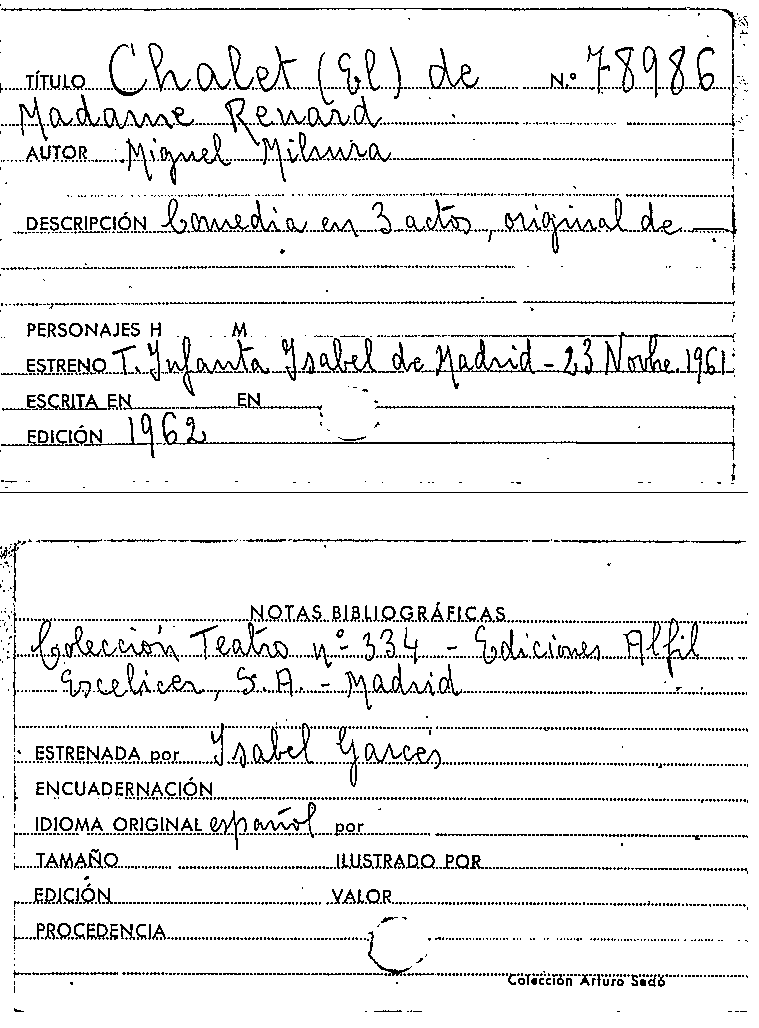 TÍTULO Chalet (El) de N.º 78986
Madame Renard
AUTOR Miguel Mihura
DESCRIPCIÓN Comedia en 3 actos, original de —
PERSONAJES H M
ESTRENO T. Infanta Isabel de Madrid - 23 Novbe. 1961
ESCRITA EN EN
EDICIÓN 1962
NOTAS BIBLIOGRÁFICAS
Colección Teatro nº 334 - Ediciones Alfil
Escelicer, S.A. - Madrid
ESTRENADA por Isabel Garcés
ENCUADERNACIÓN
IDIOMA ORIGINAL español por
TAMAÑO ILUSTRADO POR
EDICIÓN VALOR
PROCEDENCIA
Colección Arturo Sedó